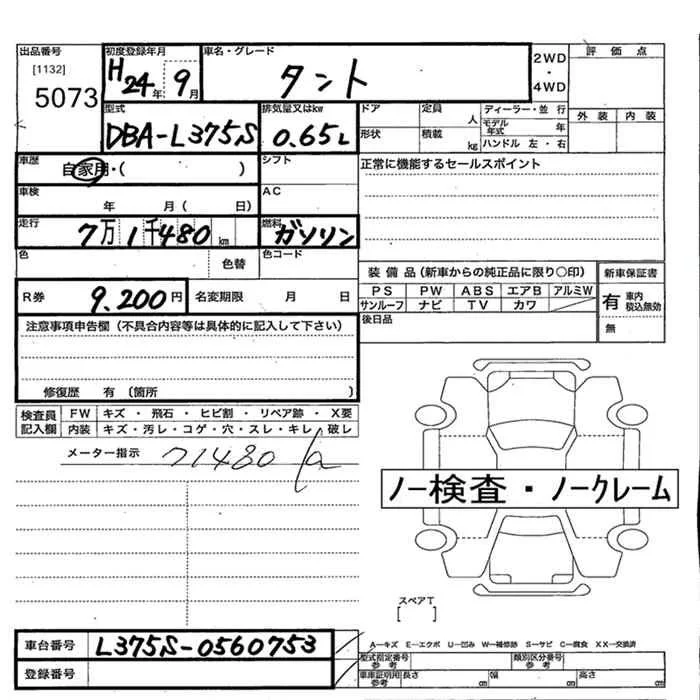 出品番号 初度登録年月 車名・グレード 2WD・4WD 評価点
[1132]
5073 H24年 9月 タント
外装 内装
型式 排気量又はkw ドア 定員 人 ディーラー・並行
DBA-L375S 0.65L 形状 積載 kg モデル年式 年
ハンドル 左・右
車歴 自家用・( ) シフト 正常に機能するセールスポイント
車検 年 月( 日) AC
走行 7万1千480km 燃料 ガソリン
色 色替 色コード
装備品(新車からの純正品に限り○印) 新車保証書
R券 9.200円 名変期限 月 日
PS PW ABS エアB アルミW 有 車内税込無効
サンルーフ ナビ TV カワ
後日品 無
注意事項申告欄(不具合内容等は具体的に記入して下さい)
修復歴 有〔箇所 )
検査員記入欄 FW キズ・飛石・ヒビ割・リペア跡・X要
内装 キズ・汚レ・コゲ・穴・スレ・キレ・破レ
メーター指示 71480
ノー検査・ノークレーム
スペアT
[ ]
車台番号 L375S-0560753
登録番号
A―キズ E―エクボ U―凹み W―補修跡 S―サビ C―腐食 XX―交換済
型式指定番号参考 類別区分番号参考
車庫証明用参考 長さ cm 幅 cm 高さ cm